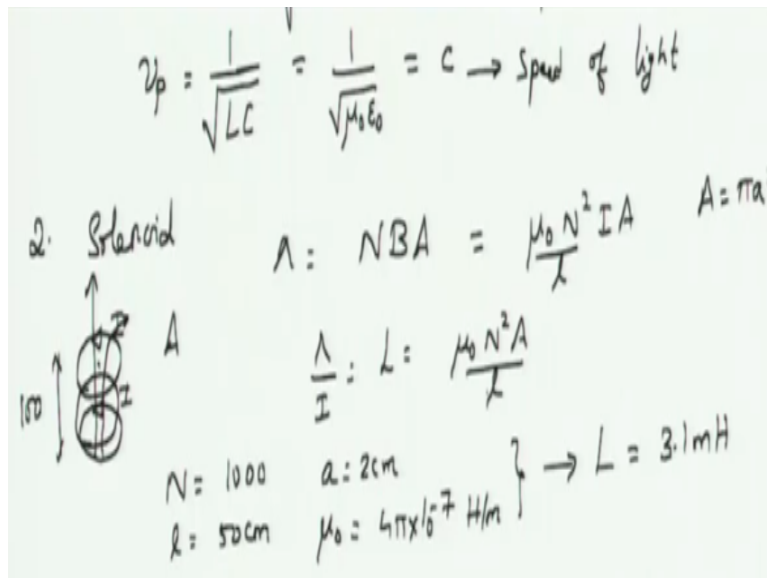 υp = 1/√LC = 1/√μ₀ε₀ = c → Speed of light
2. Solenoid
Λ = NBA = μ₀N²IA/l A = πa
I
A
Λ/I = L = μ₀N²A/l
100
I
N = 1000 a = 2cm
l = 50cm μ₀ = 4π×10⁻⁷ H/m } → L = 3.1mH